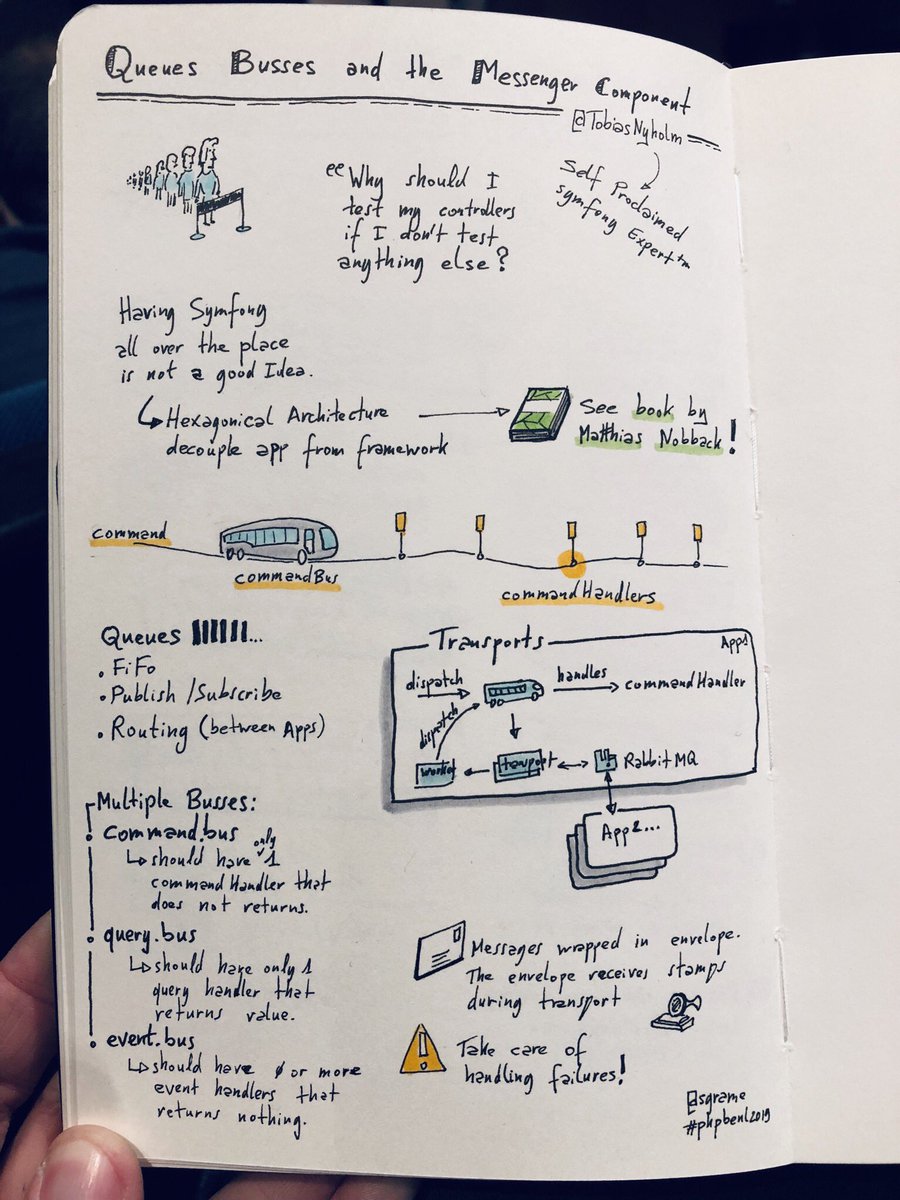 Queues Busses and the Messenger Component
@TobiasNyholm
Self Proclaimed
symfony Expert™
"Why should I
test my controllers
if I don't test
anything else?
Having Symfony
all over the place
is not a good Idea.
Hexagonical Architecture
decouple app from framework
See book by
Matthias Nobback!
command
commandBus
commandHandlers
Queues ...
• FiFo
• Publish/Subscribe
• Routing (between Apps)
Transports
App1
dispatch
handles
commandHandler
dispatch
worker
transport
RabbitMQ
App2...
Multiple Busses:
command.bus
only
should have 1
command Handler that
does not returns.
query.bus
should have only 1
query handler that
returns value.
event.bus
should have 0 or more
event handlers that
returns nothing.
Messages wrapped in envelope.
The envelope receives stamps
during transport
Take care of
handling failures!
@sgrame
#phpbenl2019